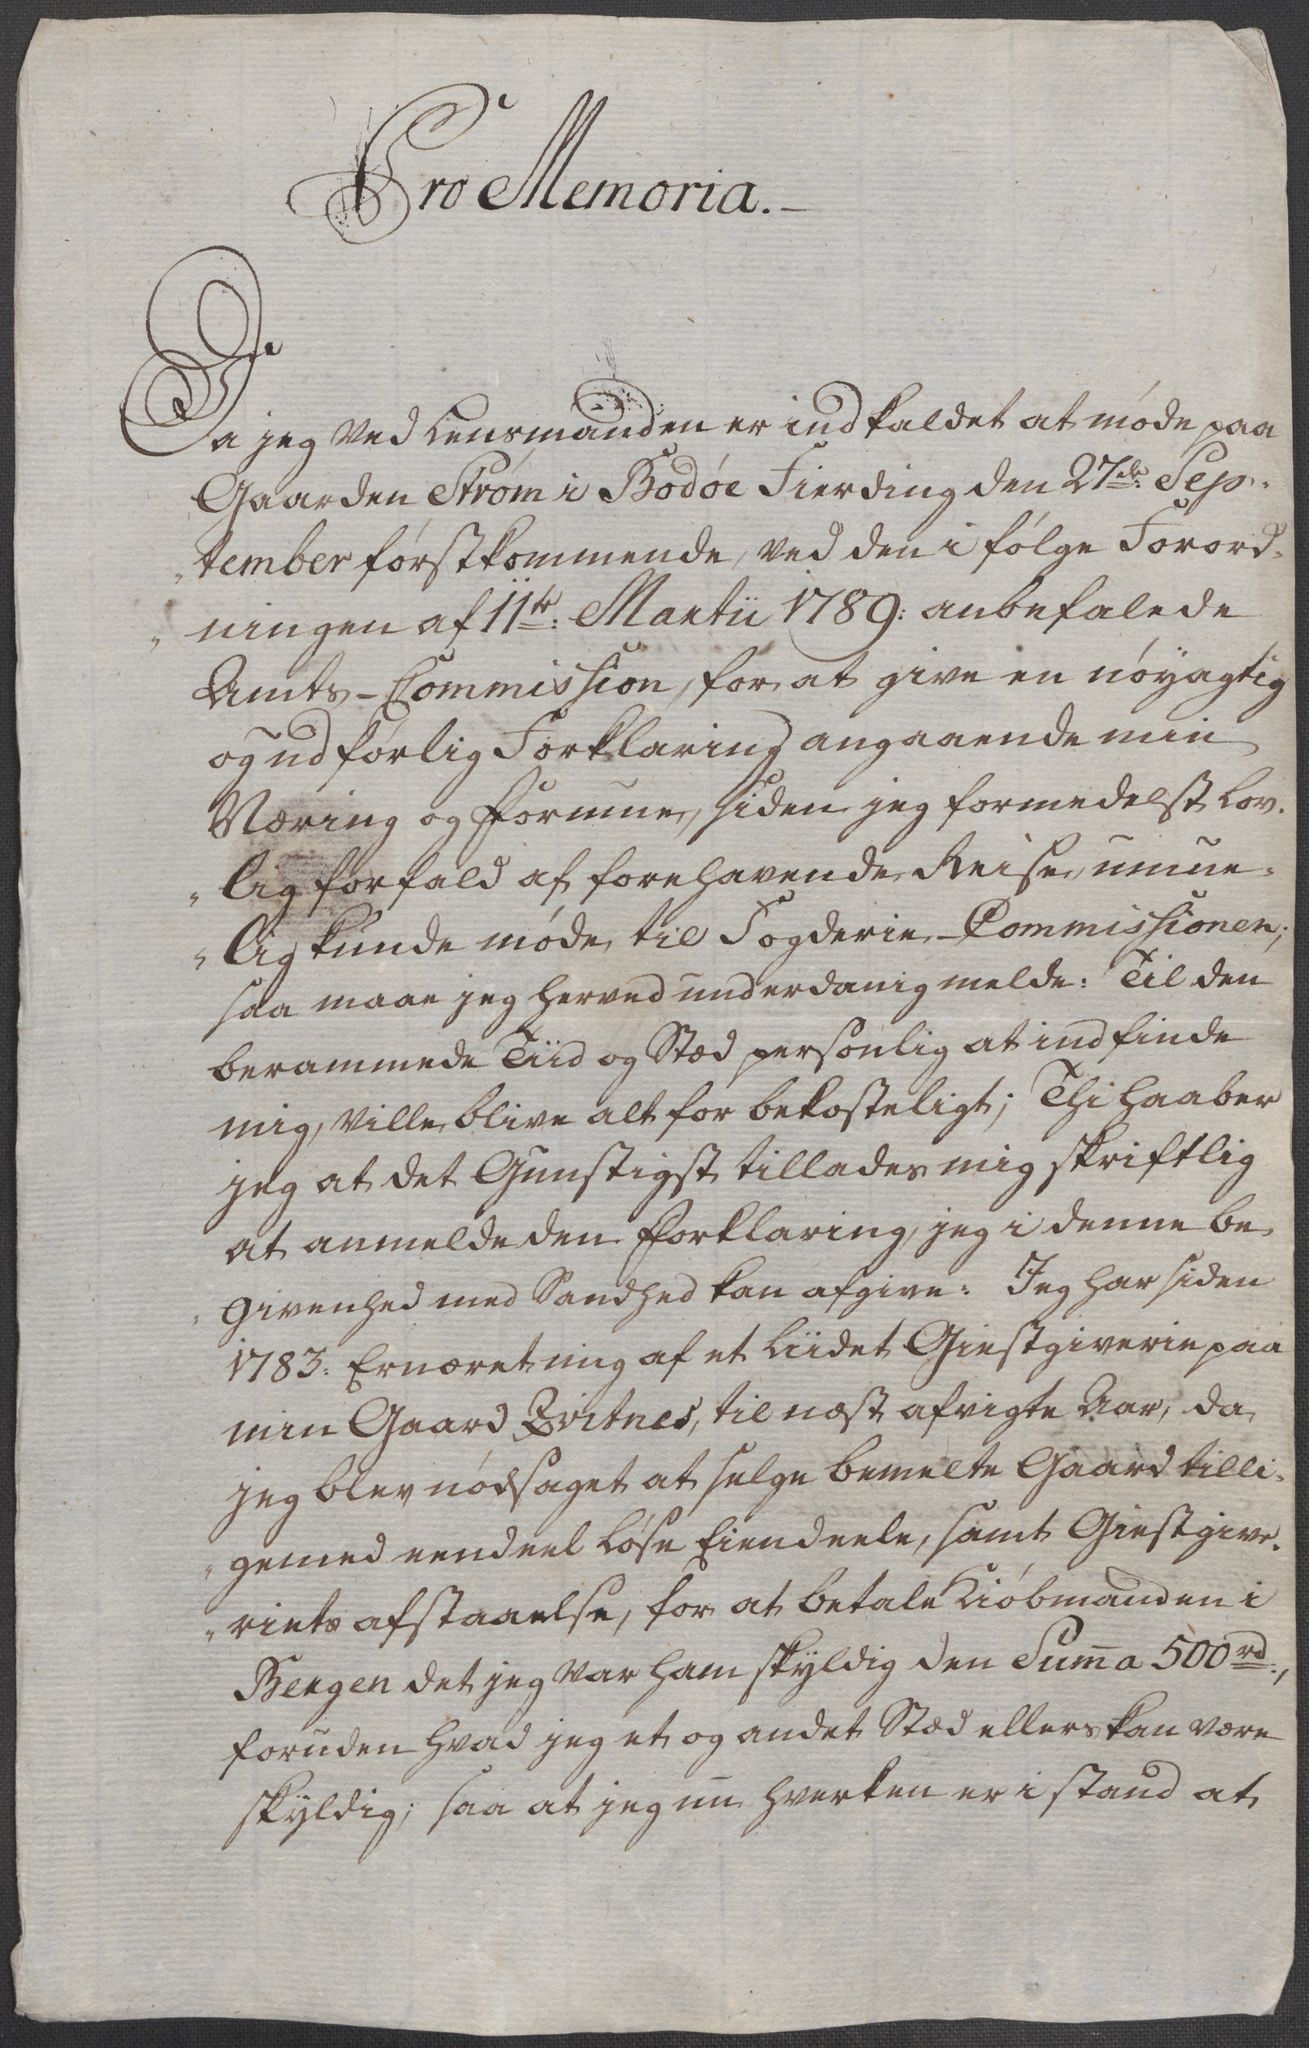 Pro Memoria.-
Da jeg ved Lensmanden er indkaldet at møde paa
Gaarden Strøm i Bodøe Fierding den 27de: Sep-
„tember førstkommende, ved den i følge Forord-
„ningen af 11te: Martii 1789: anbefalede
Amts-Commission, for at give en nøyagtig
og udførlig Forklaring angaaende min
Næring og Formue, siden jeg formedelst Lov-
„lig forfald af forehavende Reise, umue-
„lig kunde møde til Fogderie-Commissionen;
saa maae jeg herved underdanig melde: Til den
berammede Tiid og Stæd personlig at indfinde
mig, ville blive alt for bekosteligt; Thi haaber
jeg at det Gunstigst tillades mig skriftlig
at anmelde den Forklaring, jeg i denne be-
„givenhed med Sandhed kan afgive: Jeg har siden
1783: Ernæret mig af et liidet Giestgiverie paa
min Gaard, til næst afvigte Aar, da
jeg blev nødsaget at selge bemelte Gaard tilli-
„gemed eendeel løse Eiendeele, samt Giestgive-
„riets afstaaelse, for at betale Kiøbmanden i
Bergen det jeg var ham skyldig den Sum̅a 500rd:,
foruden hvad jeg et og andet Stæd ellers kan være
skyldig; saa at jeg nu hverken er i stand at